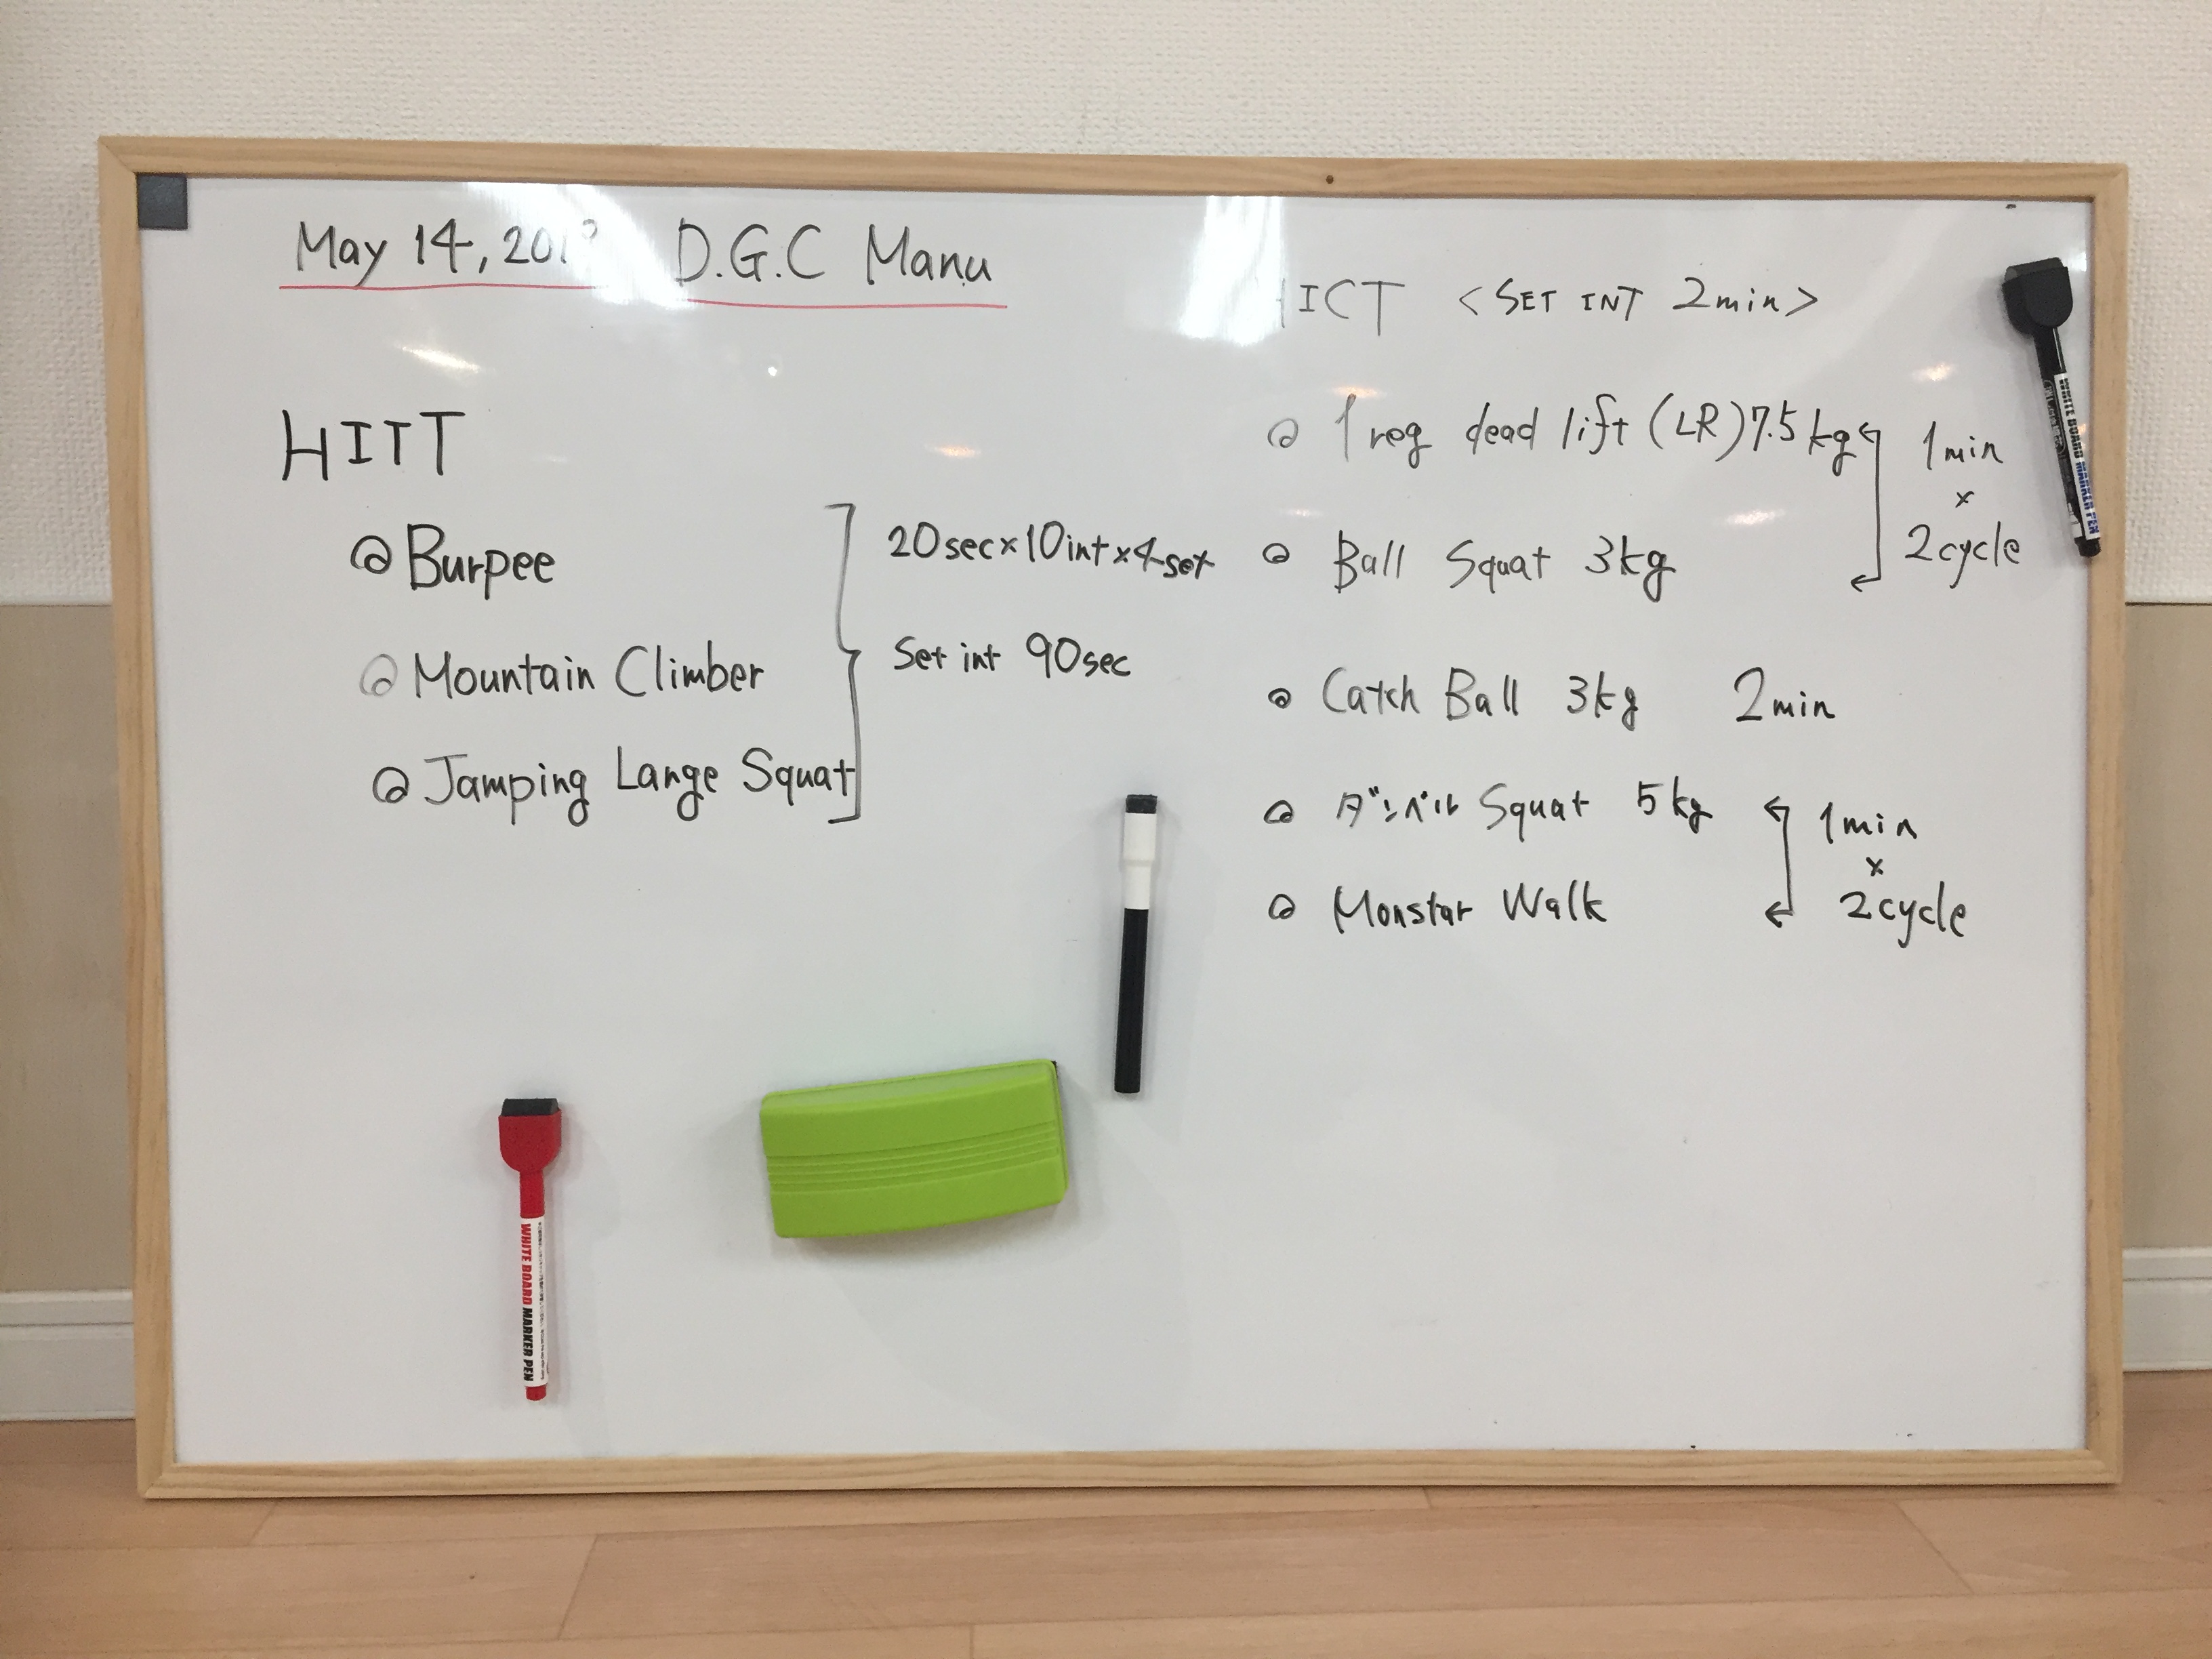 May 14, D.G.C Manu
HITT
@ Burpee
@ Mountain Climber
@ Jamping Lange Squat
20sec×10int×4set
Set int 90sec
HICT <SET INT 2min>
@ 1 reg dead lift (LR) 7.5kg
@ Ball Squat 3kg
1min
×
2cycle
@ Catch Ball 3kg 2min
@ ダンベル Squat 5kg
@ Monstar Walk
1min
×
2cycle
WHITE BOARD MARKER PEN
WHITE BOARD MARKER PEN